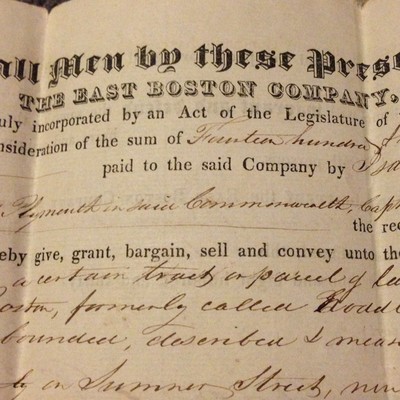 all Men by these Prese
THE EAST BOSTON COMPANY,
uly incorporated by an Act of the Legislature of
nsideration of the sum of Fourteen hundred
paid to the said Company by Isa
Plymouth in said Commonwealth, Capt
the rec
eby give, grant, bargain, sell and convey unto the
a certain tract or parcel of la
oston, formerly called Noddl
bounded, described & meas
ly on Sumner Street, nin